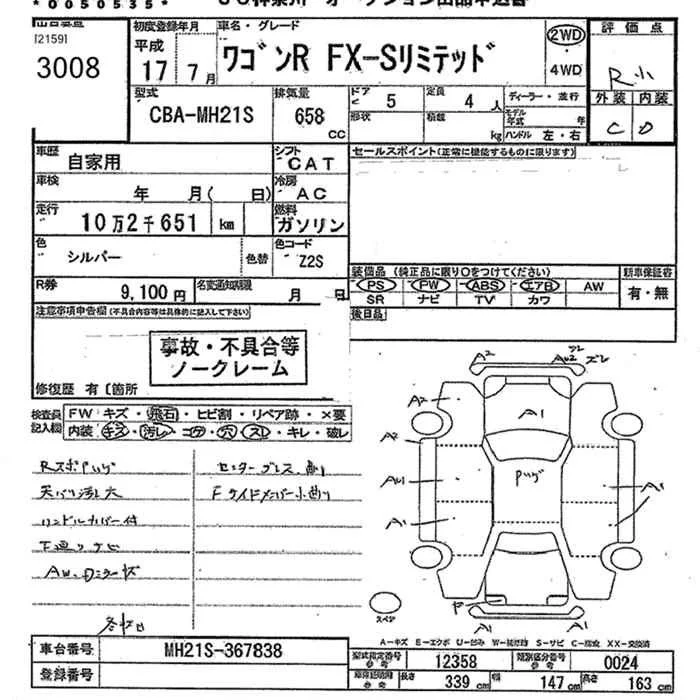 *0050535*
[2159]
3008
初度登録年月
平成
17年7月
車名・グレード
ワゴンR FX-Sリミテッド
2WD
・
4WD
評価点
R
外装 内装
C D
型式
CBA-MH21S
排気量
658
CC
ドア
5
定員
4人
形状
積載
kg
ディーラー・並行
モデル年式 年
ハンドル 左・右
車歴
自家用
シフト
CAT
セールスポイント(正常に機能するものに限ります)
車検
年 月( 日)
冷房
AC
走行
10万2千651 km
燃料
ガソリン
色
シルバー
色替
色コード
Z2S
装備品(純正品に限り○をつけてください)
新車保証書
PS PW ABS エアB AW
SR ナビ TV カワ
有・無
R券
9,100円
名変通知期限
月 日
後日品
注意事項申告欄(不具合内容等は具体的に記入して下さい)
事故・不具合等
ノークレーム
修復歴 有〔箇所
検査員記入欄
FW キズ・飛石・ヒビ割・リペア跡・×要
内装 キズ・汚レ・コゲ・穴・スレ・キレ・破レ
天バリ汚レ大
ハンドルカバー付
下廻リサビ
A2
A2
A2
A1
AU1
A1
A1
A1
A1
A1
スペア
A-キズ E-エクボ U-凹み W-補修跡 S-サビ C-腐蝕 XX-交換済
車台番号
MH21S-367838
登録番号
型式指定番号
参考
12358
類別区分番号
参考
0024
車庫証明用
参考
長さ 339cm 幅 147cm 高さ 163cm